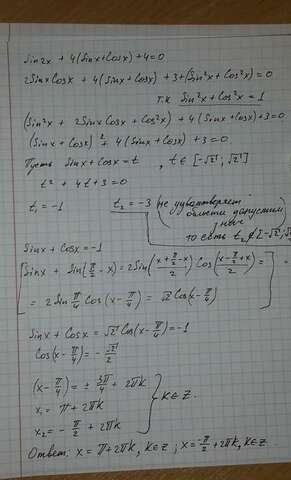 Sin2x + 4(Sinx+Cosx)+4=0
2SinxCosx + 4(Sinx+Cosx) + 3+(Sin²x+Cos²x)=0
т.к Sin²x+Cos²x=1
(Sin²x + 2SinxCosx+Cos²x) + 4(Sinx+Cosx)+3=0
(Sinx+Cosx)² + 4(Sinx+Cosx)+3=0.
Пусть Sinx+Cosx=t , t∈[-√2;√2]
t²+4t+3=0
t₁=-1 t₂=-3 (не удовлетворяет
области допустим
знач
то есть t₂∉[-√2;√2]
Sinx+Cosx=-1
[Sinx + Sin(π/2-x)=2Sin((x+π/2-x)/2)Cos((x-π/2+x)/2)=] =
=2Sin π/4 Cos(x-π/4)=√2Cos(x-π/4)
Sinx+Cosx=√2Cos(x-π/4)=-1
Cos(x-π/4)=-√2/2
(x-π/4)=±3π/4+2πk
x₁=π+2πk } k∈Z.
x₂=-π/2+2πk
Ответ: x=π+2πk, k∈Z ; x=-π/2+2πk, k∈Z